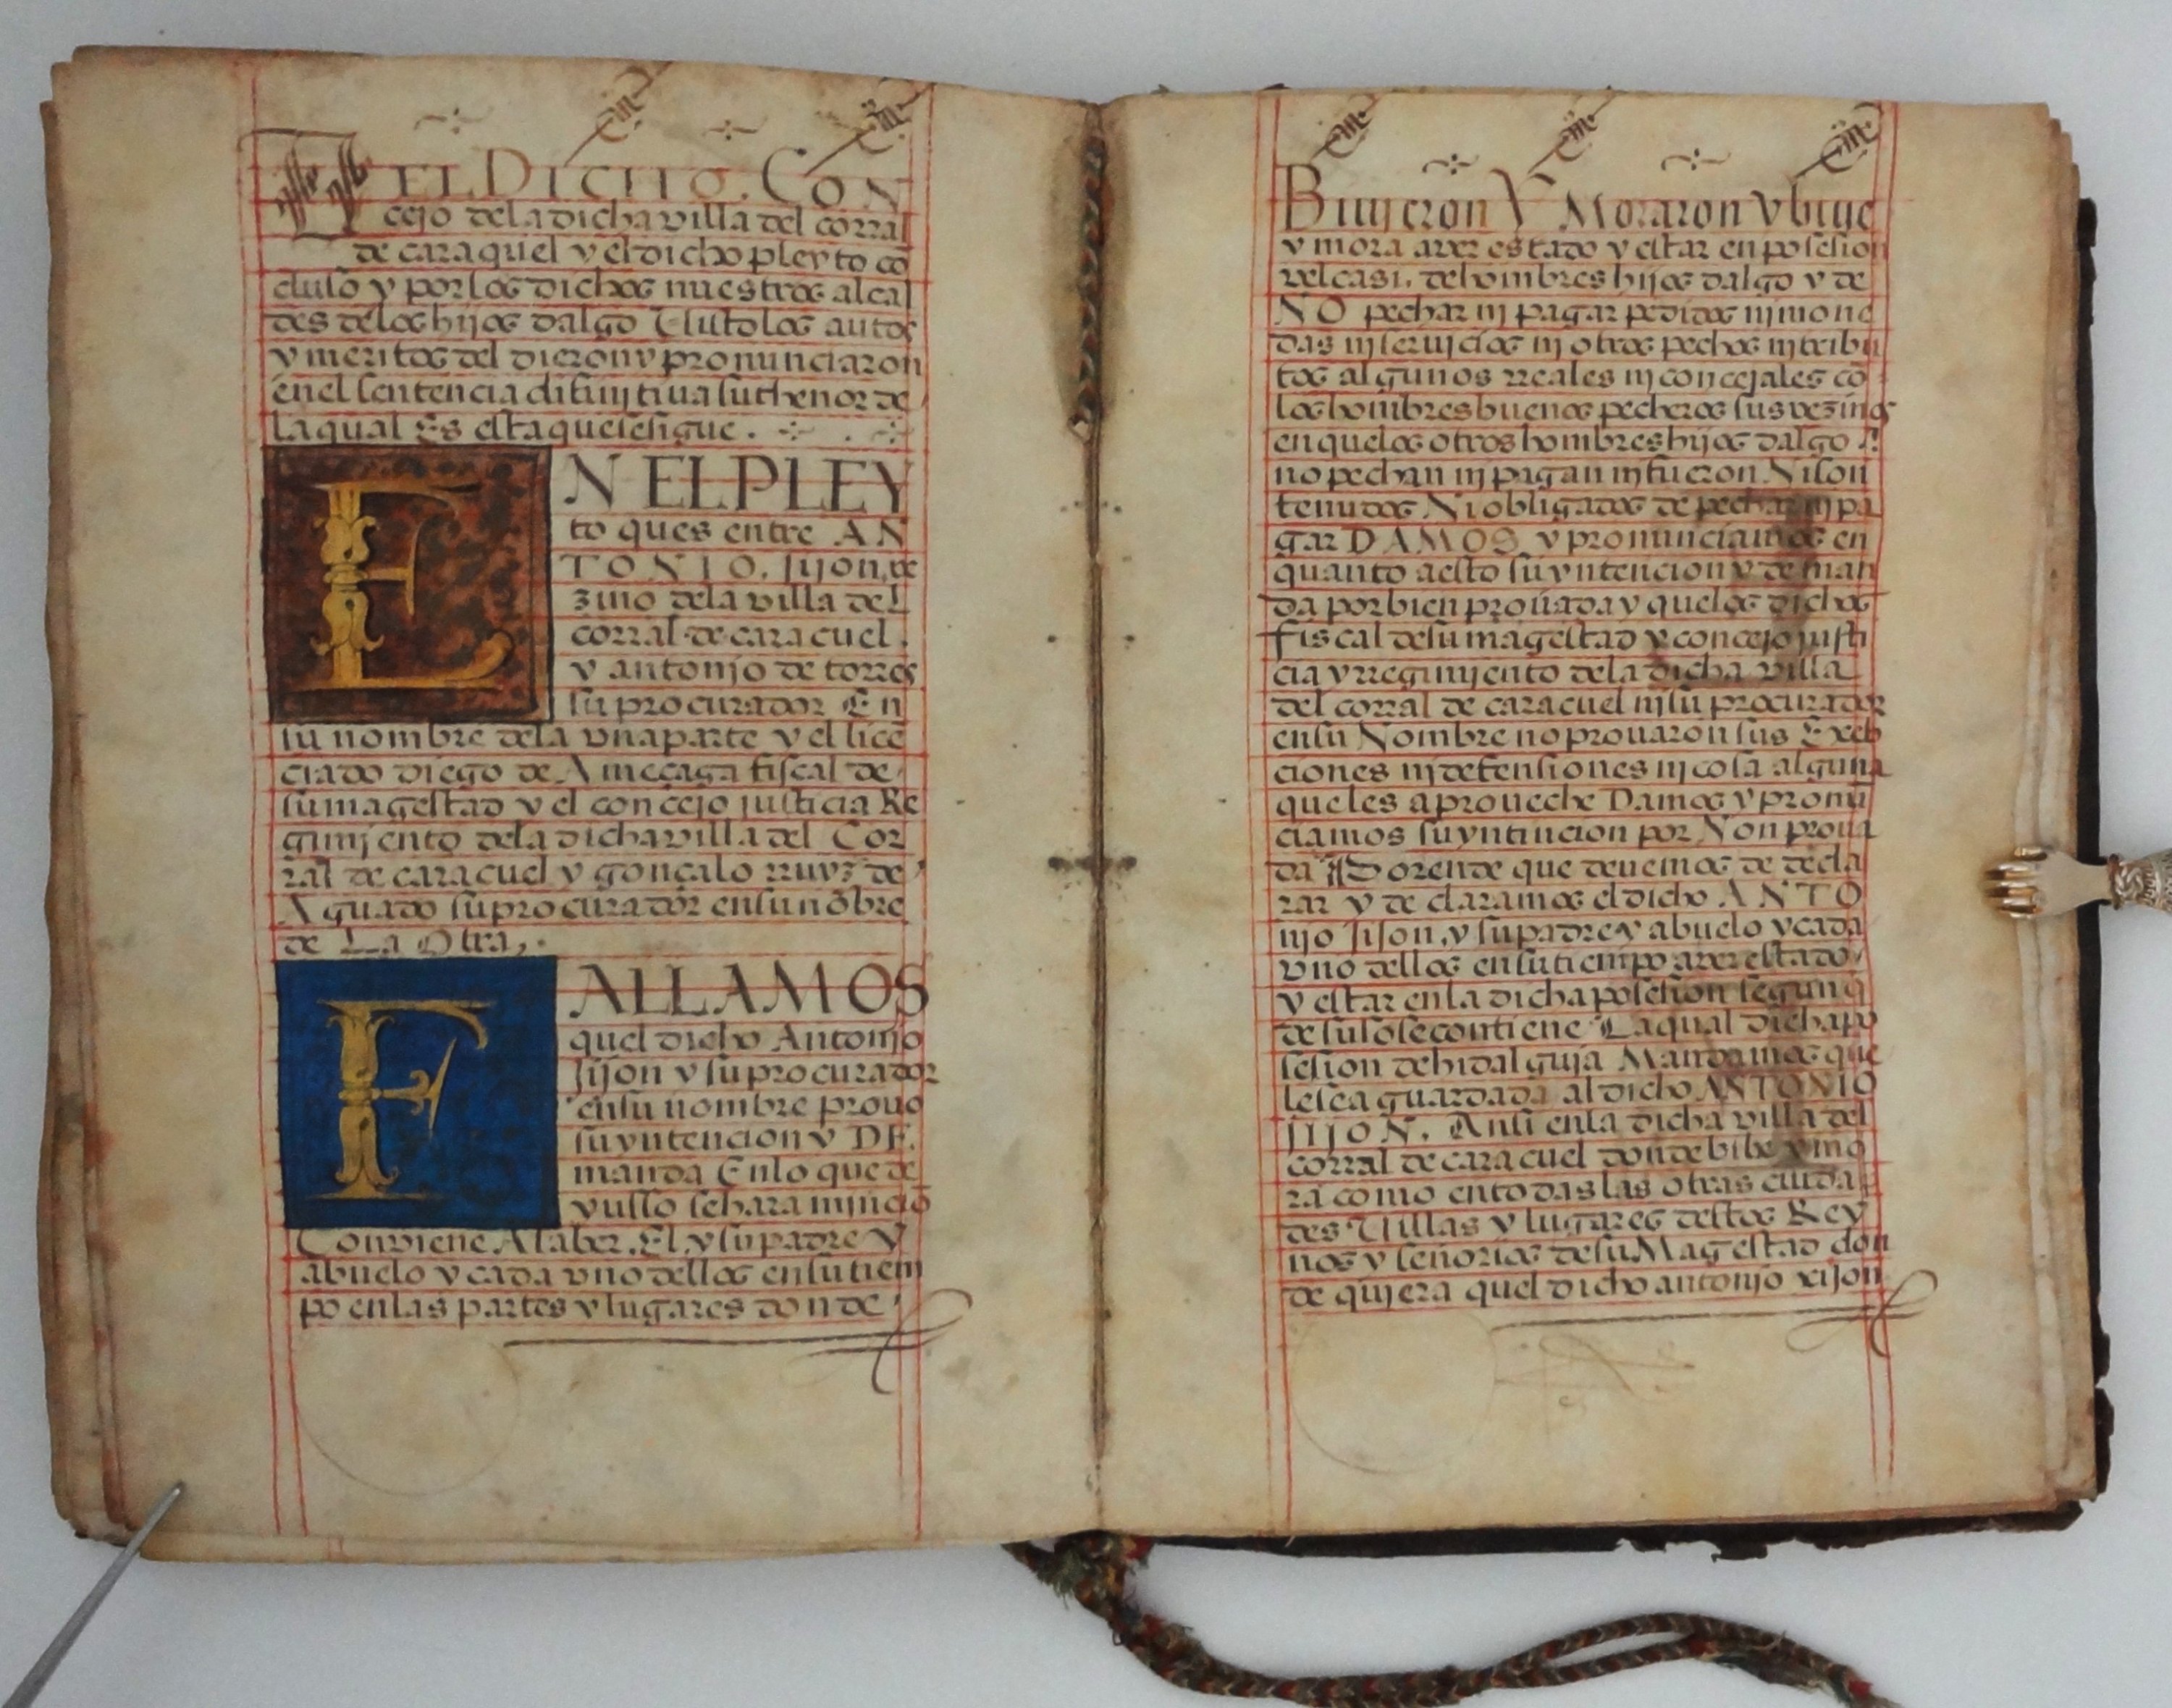 EL DICHO. CON
cejo dela dicha villa del corral
de caraquel y el dicho pleyto cō
cluso y por los dichos nuestros alcal
des delos hijos dalgo Visto los autos
y meritos del dieron y pronunciaron
enel sentencia difinjtiua su thenor de
la qual Es esta que se sigue.
EN EL PLEY
to ques entre AN
TONIO. Jijon, ve
zino dela villa del
corral de caracuel.
y antonjo de torres
su procurador En
su nombre dela vna parte y el licē
ciado diego de Ameçaga fiscal de
su magestad y el concejo justicia Re
gimjento dela dicha villa del Cor
ral de caracuel y gonçalo rruyz de
Aguado su procurador en su nōbre
de La Otra,
FALLAMOS
quel dicho Antonjo
Jijon y su procurador
en su nombre prouo
su yntencion y DE
manda En lo que de
yusso se hara mincio
Conviene A saber. El, y su padre y
abuelo y cada vno dellos en su tiem
po en las partes y lugares donde
Biujeron Y Moraron y biue
y mora aver estado y estar en posesion
vel casi. de hombres hijos dalgo y de
NO pechar nj pagar pedidos nj mone
das nj serujcios nj otros pechos nj tribu
tos algunos rreales nj concejales cō
los hombres buenos pecheros sus vezinos
en quelos otros hombres hijos dalgo
no pechan nj pagan nj fueron Ni son
tenudos Ni obligados de pechar nj pa
gar DAMOS y pronunciamos en
quanto a esto su yntencion y deman
da por bien prouada y quelos dichos
fiscal de su magestad y concejo justi
cia y rregimjento dela dicha villa
del corral de caracuel nj su procurador
en su Nombre no prouaron sus Exeb
ciones nj defensiones nj cosa alguna
que les aproueche Damos y pronū
ciamos su yntincion por Non proua
da Porende que deuemos de decla
rar y declaramos el dicho ANTO
njo Jison, y su padre y abuelo y cada
vno dellos en su tiempo aver estado
y estar en la dicha posesion segun q̄
de suso se contiene La qual dicha po
sesion de hidalguja Mandamos que
le sea guardada al dicho ANTONIO
JIJON. Ansi en la dicha villa del
corral de caracuel donde bibe y mo
ra como en todas las otras ciuda
des Villas y lugares destos Rey
nos y señorios de su Magestad don
de qujera quel dicho antonjo xijon